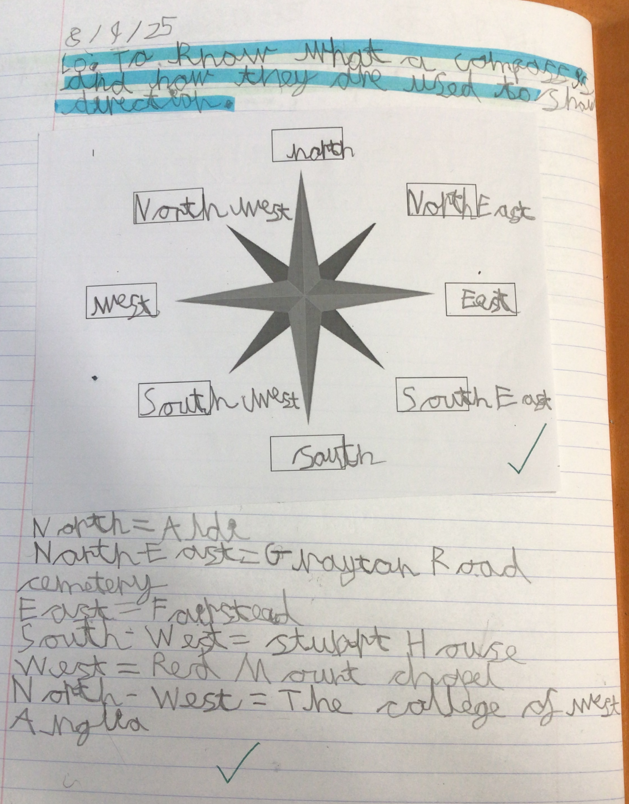 8/4/25
LO: To know what a compass is
and how they are used to show
direction.
north
North west
North East
west
East
South west
South East
South
North = Aldi
North-East = Grayton Road
cemetery
East = Fairstead
South-West = stuart House
West = Red Mount chapel
North-West = The college of west
Anglia